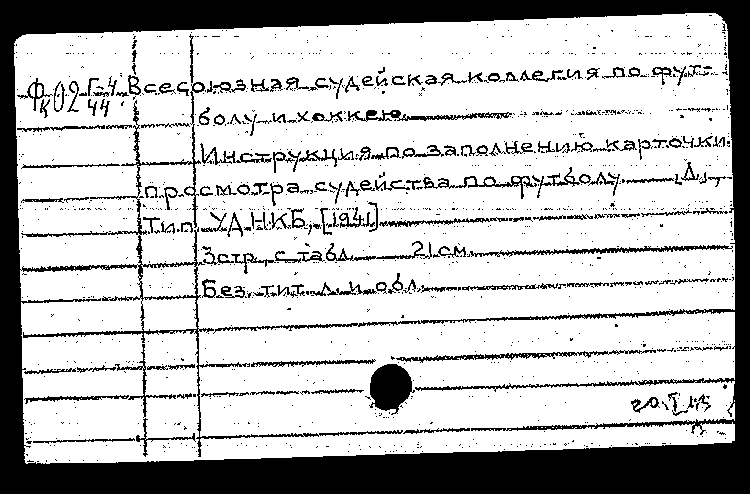 Фк02 Г-4 Всесоюзная судейская коллегия по фут-
44
болу и хоккею.
Инструкция по заполнению карточки
просмотра судейства по футболу. [Л.],
Тип. УД НКБ, [1941]
3 стр. с табл. 21 см.
Без тит. л. и обл.
20.I.43